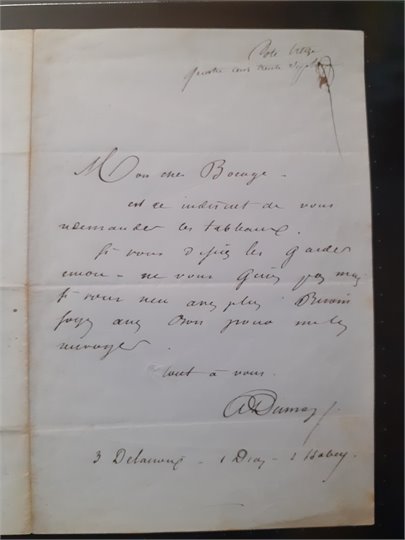 Mon cher Bocage -
est ce indiscret de vous
redemander les tableaux.
Si vous desirez les garder
encore - ne vous genez pas mais
si vous n'en avez plus Besoin
soyez assez Bon pour me les
envoyer.
tout à vous.
ADumas
3 Delacroix - 1 Diaz - 2 Isabey